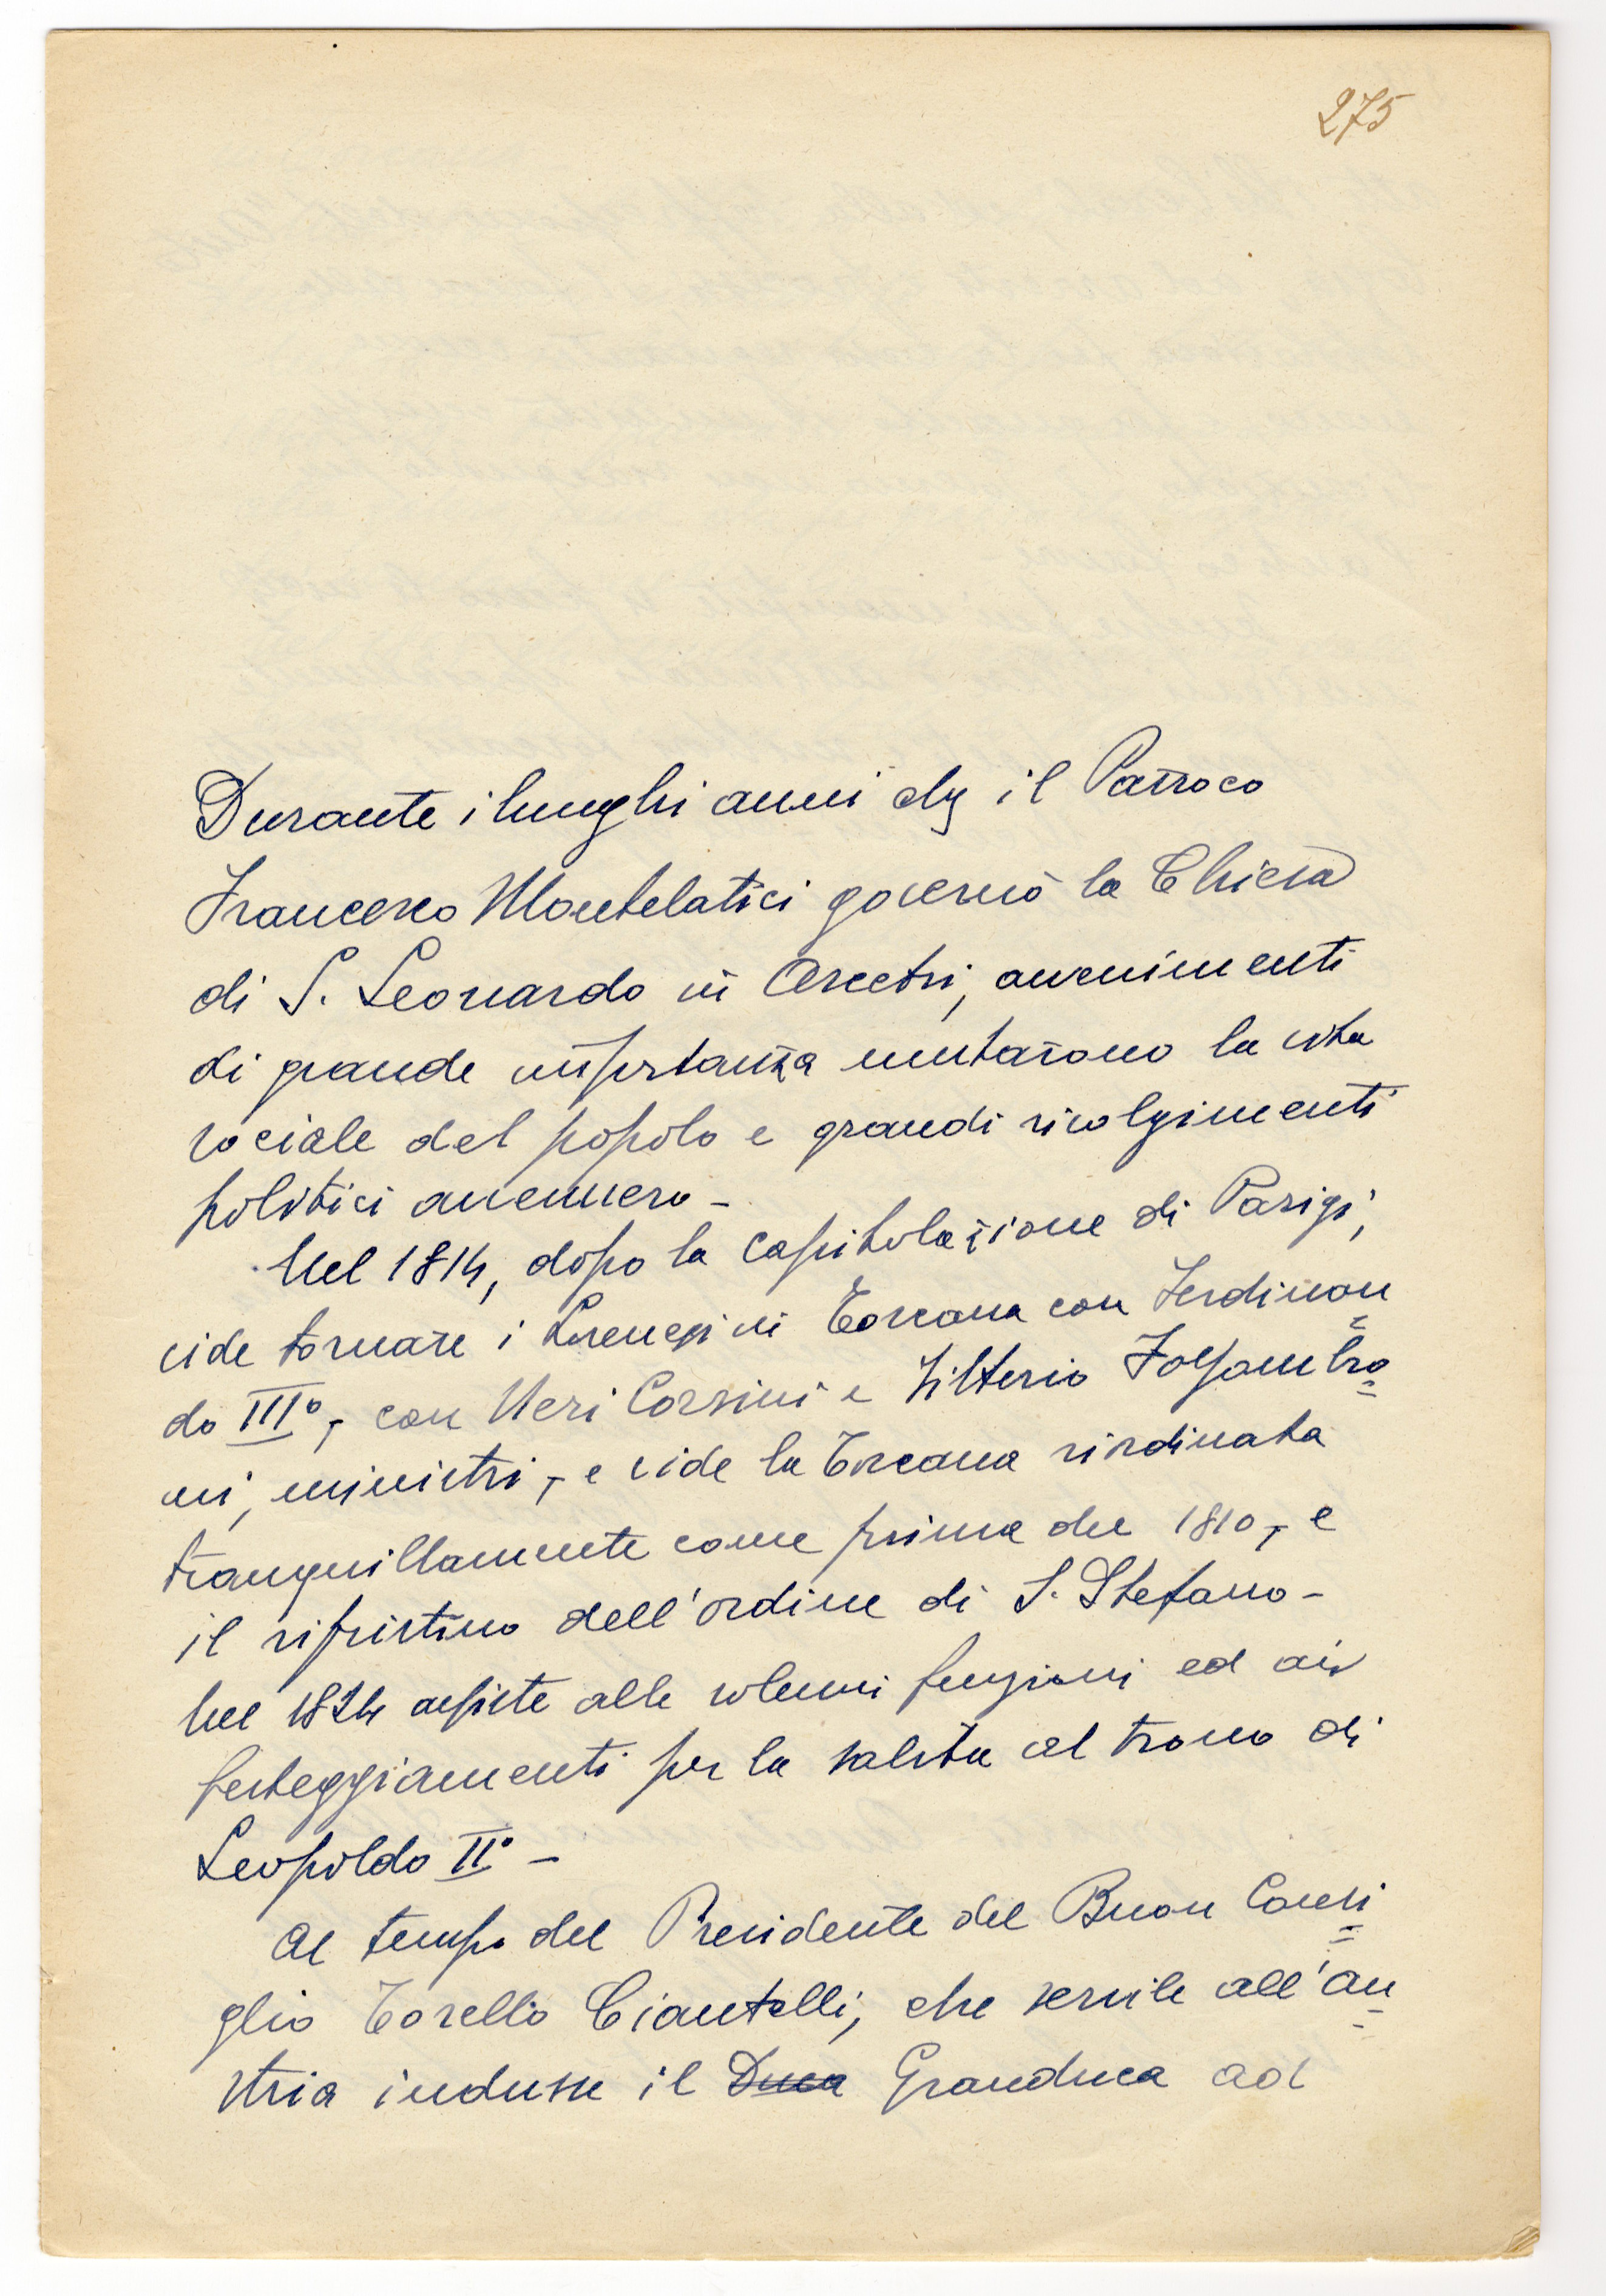 275
Durante i lunghi anni che il Parroco
Francesco Montelatici governò la Chiesa
di S. Leonardo in Arcetri, avvenimenti
di grande importanza mutarono la vita
sociale del popolo e grandi rivolgimenti
politici avvennero -
Nel 1814, dopo la capitolazione di Parigi,
vide tornare i Lorenesi in Toscana con Ferdinan
do III°, - con Neri Corsini e Vittorio Fossombro
ni, ministri, - e vide la Toscana riordinata
tranquillamente come prima del 1810, - e
il ripristino dell'ordine di S. Stefano -
Nel 1824 assiste alle solenni funzioni ed ai
festeggiamenti per la salita al trono di
Leopoldo II° -
Al tempo del Presidente del Buon Consi
glio Torello Ciantelli, che servile all'Au
stria indusse il Duca Granduca ad